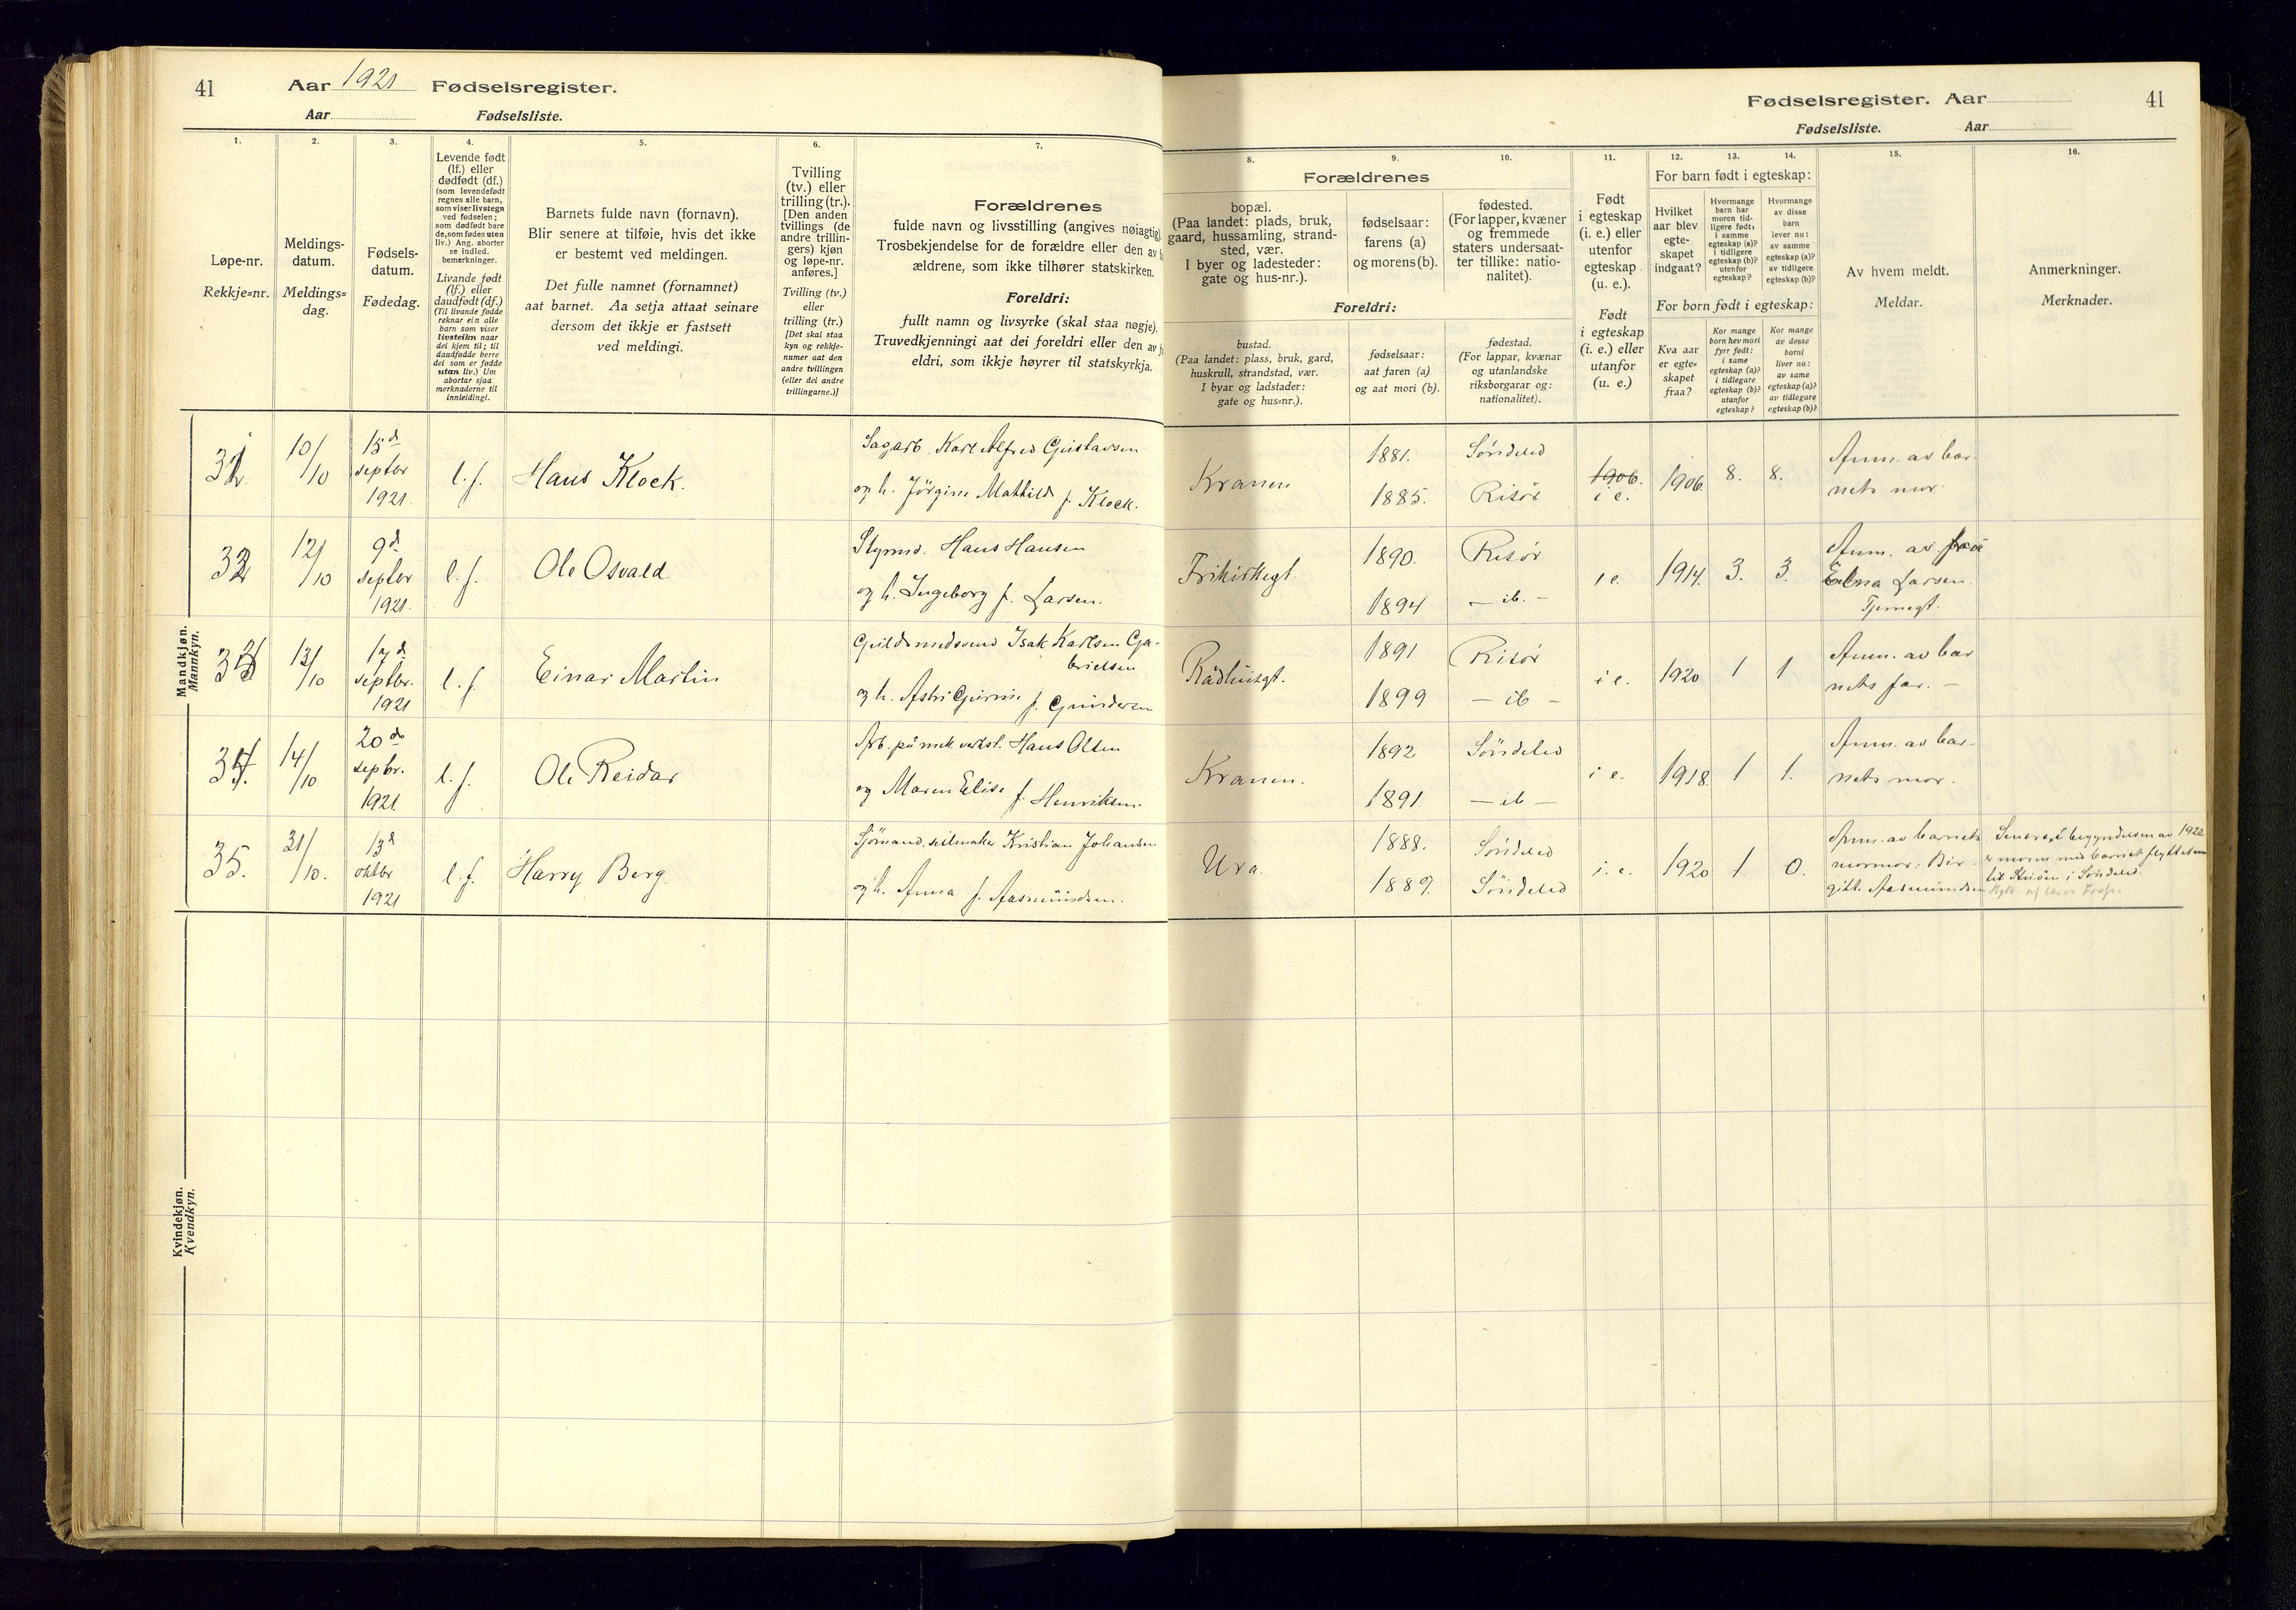 41 Aar 1921 Fødselsregister.
Aar Fødselsliste.
1. 2. 3. 4. 5. 6. 7.
Løpe-nr.
Rekkje=nr.
Meldings-
datum.
Meldings=
dag.
Fødsels-
datum.
Fødedag.
Levende født
(lf.) eller
dødfødt (df.)
(som levendefødt
regnes alle barn,
som viser livstegn
ved fødselen;
som dødfødt bare
de, som fødes uten
liv.) Ang. aborter
se indled.
bemerkninger.
Livande født
(lf.) eller
daudfødt (df.)
(Til livande fødde
reknar ein alle
barn som viser
livsteikn naar
dei kjem til; til
daudfødde berre
dei som er fødde
utan liv.) Um
abortar sjaa
merknaderne til
innleidingi.
Barnets fulde navn (fornavn).
Blir senere at tilføie, hvis det ikke
er bestemt ved meldingen.
Det fulle namnet (fornamnet)
aat barnet. Aa setja attaat seinare
dersom det ikkje er fastsett
ved meldingi.
Tvilling
(tv.) eller
trilling (tr.).
[Den anden
tvillings (de
andre trillin-
gers) kjøn
og løpe-nr.
anføres.]
Tvilling (tv.)
eller
trilling (tr.)
[Det skal staa
kyn og rekkje-
numer aat den
andre tvillingen
(eller dei andre
trillingarne.)]
Forældrenes
fulde navn og livsstilling (angives nøiagtig)
Trosbekjendelse for de forældre eller den av
ældrene, som ikke tilhører statskirken.
Foreldri:
fullt namn og livsyrke (skal staa nøgje).
Truvedkjenningi aat dei foreldri eller den av
eldri, som ikkje høyrer til statskyrkja.
Mandkjøn.
Mannkyn.
31 10/10 15d septbr 1921. l. f. Hans Klock.
Sagarb. Karl Alfred Gustavsen
og h. Jørgine Mathilde f. Klock.
32 12/10 9d septbr 1921. l. f. Ole Osvald
Styrmd. Hans Hansen
og h. Ingeborg f. Larsen.
33 13/10 17d septbr. 1921 l. f. Einar Martin
Guldsmedsvend Isak Karlsen Ga-
brielsen
og h. Astri f. Gundersen
34. 14/10 20de sepbr. 1921 l. f. Ole Reidar
Arb. på mek verkst. Hans Olsen
og Maren Elise f. Henriksen.
35. 31/10. 13d oktbr 1921 l. f. Harry Berg.
Sjømand, seilmaker Kristian Johansen
og h. Anna f. Aasmundsen.
Kvindekjøn.
Kvendkyn.
Fødselsregister. Aar 41
Fødselsliste. Aar
8. 9. 10. 11. 12. 13. 14. 15. 16.
Forældrenes
bopæl.
(Paa landet: plads, bruk,
gaard, hussamling, strand-
sted, vær.
I byer og ladesteder:
gate og hus-nr.).
fødselsaar:
farens (a)
og morens (b).
fødested.
(For lapper, kvæner
og fremmede
staters undersaat-
ter tillike: natio-
nalitet).
Foreldri:
bustad.
(Paa landet: plass, bruk, gard,
huskrull, strandstad, vær.
I byar og ladstader:
gate og hus=nr.).
fødselsaar:
aat faren (a)
og aat mori (b).
fødestad.
(For lappar, kvænar
og utanlandske
riksborgarar og:
nationalitet).
Født
i egteskap
(i. e.) eller
utenfor
egteskap
(u. e.).
Født
i egteskap
(i. e.) eller
utanfor
(u. e.)
For barn født i egteskap:
Hvilket
aar blev
egte-
skapet
indgaat?
Hvormange
barn har
moren tid-
ligere født:
i samme
egteskap (a)?
i tidligere
egteskap (b)?
utenfor
egteskap?
Hvormange
av disse
barn
lever nu:
av samme
egteskap (a)?
av tidligere
egteskap (b)?
For born født i egteskap:
Kva aar
er egte=
skapet
fraa?
Kor mange
born hev mori
fyrr født:
i same
egteskap (a)?
i tidlegare
egteskap (b)?
utanfor
egteskap?
Kor mange
av desse
borni
liver no:
av same
egteskap (a)?
av tidlegare
egteskap (b)?
Av hvem meldt.
Meldar.
Anmerkninger.
Merknader.
Kranen 1881. Søndeled 1906. i e. 1906. 8. 8. Anm. av bar-
1885. Risør nets mor.
Frikirkegt. 1890. Risør i e. 1914. 3. 3. Anm. av frøi
1894 — ib. — Elna Larsen.
Tjernegt.
Rådhusgt. 1891 Risør i e. 1920 1 1 Anm. av bar
1899 — ib — nets far. —
Kranen. 1892 Søndeled i e. 1918. 1 1. Anm. av bar-
1891 — ib — nets mor.
Ura. 1888. Søndeled i. e. 1920 1 0. Anm. av barnets
1889. Søndeled mormor. Bir-
gitte Aasmundsen
begyndelsen av 1922
er moren med barnet flyttet
til i Søndeled.